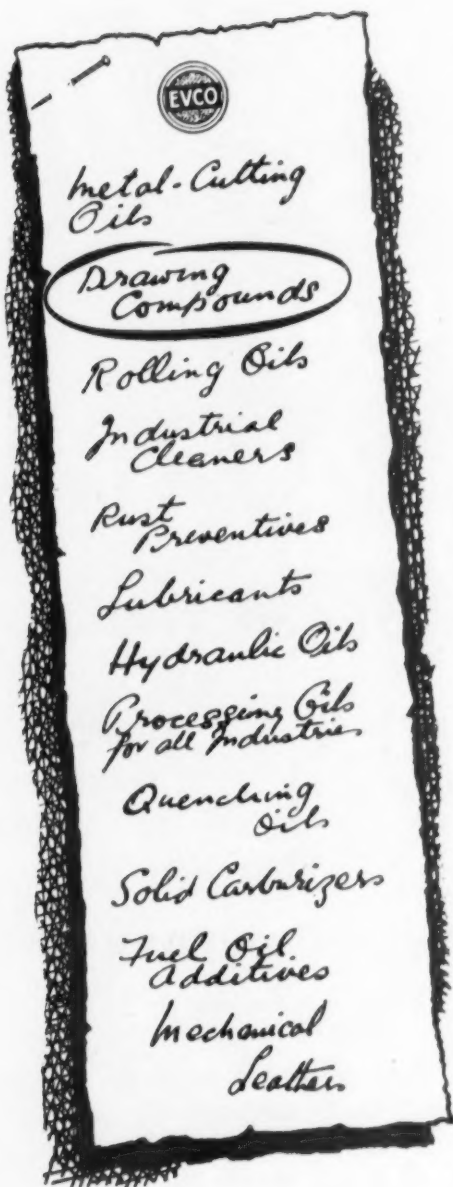 EVCO
Metal-Cutting
Oils
Drawing
Compounds
Rolling Oils
Industrial
Cleaners
Rust
Preventives
Lubricants
Hydraulic Oils
Processing Oils
for all Industries
Quenching
Oils
Solid Carburizers
Fuel Oil
Additives
Mechanical
Leathers